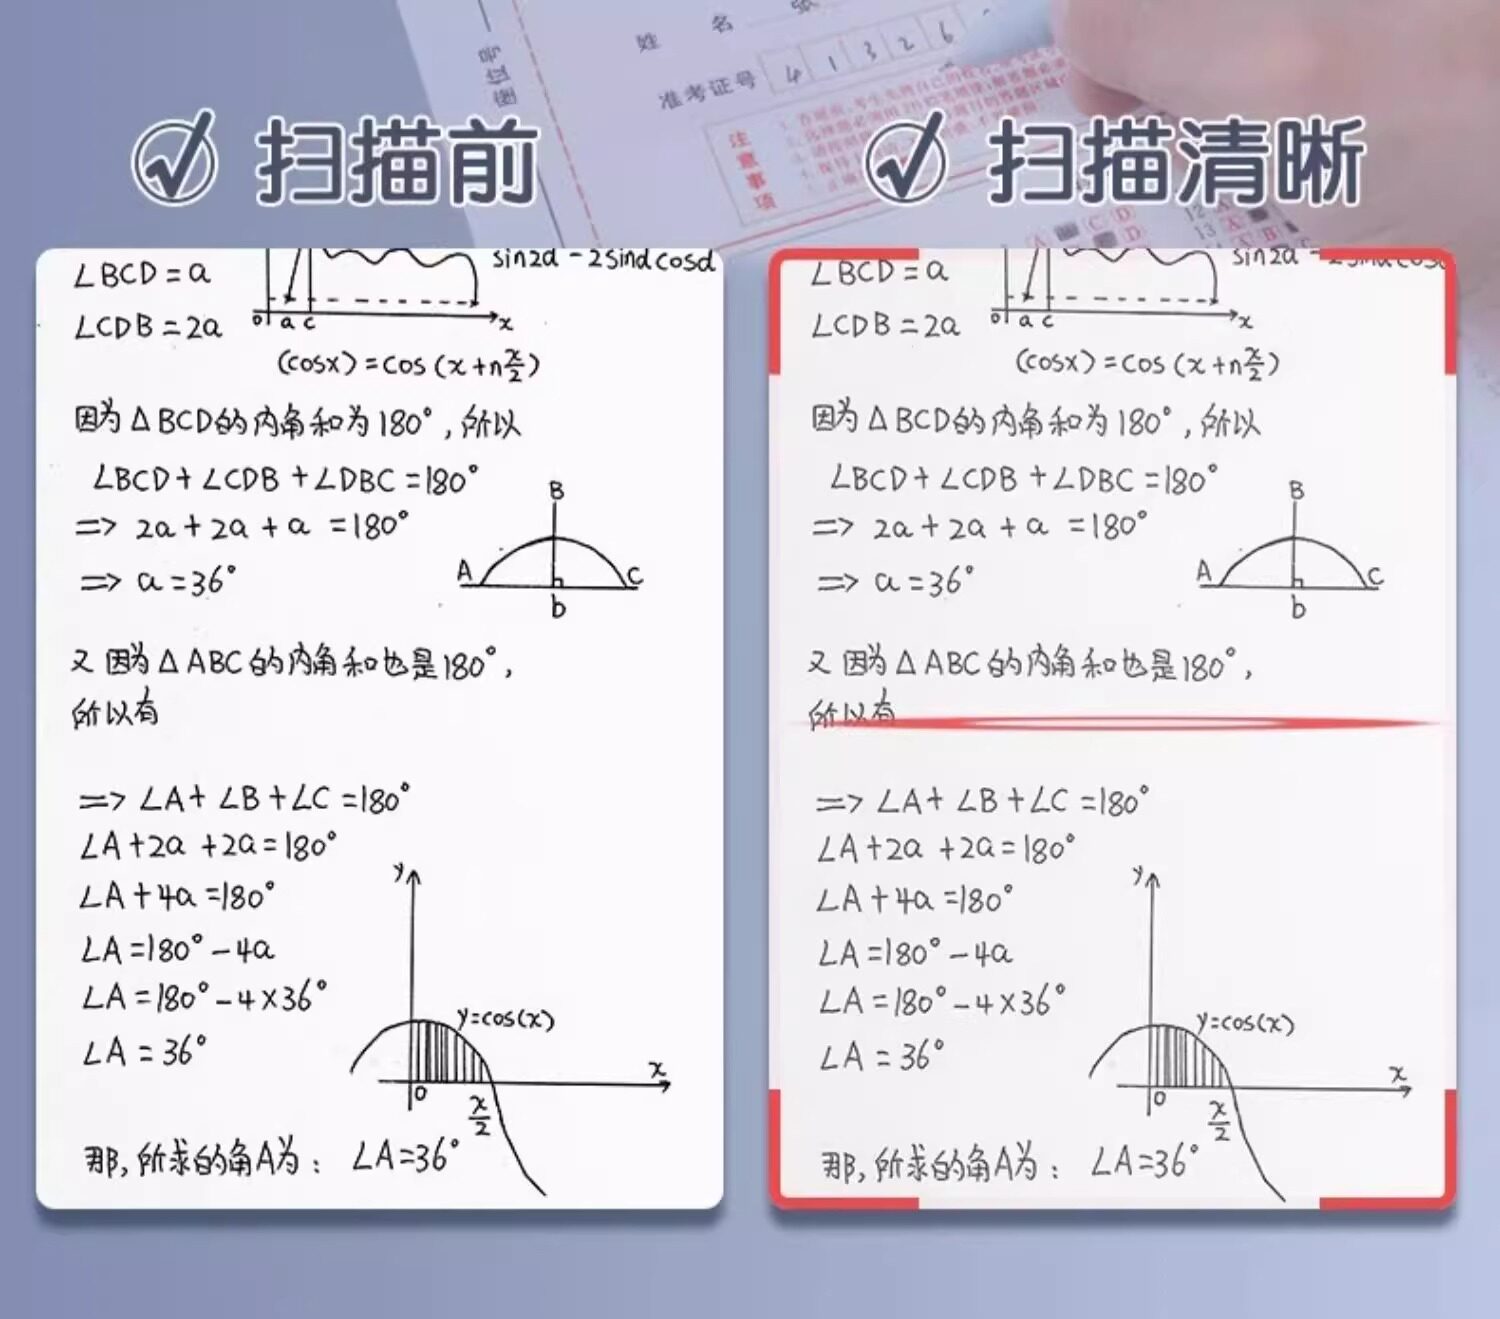 姓 名
座位号
准考证号 4 1 3 2 6
注意事项
扫描前
扫描清晰
∠BCD=a
sin2α-2sinαcosα
∠CDB=2a
0 a c x
(cosx)=cos(x+n x/2)
因为△BCD的内角和为180°,所以
∠BCD+∠CDB+∠DBC=180°
B
=> 2a+2a+a =180°
=> a=36°
A C
b
又因为△ABC的内角和也是180°,
所以有
=> ∠A+∠B+∠C=180°
∠A+2a+2a=180°
y
∠A+4a=180°
∠A=180°-4a
∠A=180°-4×36°
y=cos(x)
∠A=36°
x
0
x/2
那,所求的角A为: ∠A=36°
∠BCD=a
∠CDB=2a
0 a c x
(cosx)=cos(x+n x/2)
因为△BCD的内角和为180°,所以
∠BCD+∠CDB+∠DBC=180°
B
=> 2a+2a+a =180°
=> a=36°
A C
b
又因为△ABC的内角和也是180°,
所以有
=> ∠A+∠B+∠C=180°
∠A+2a+2a=180°
y
∠A+4a=180°
∠A=180°-4a
∠A=180°-4×36°
y=cos(x)
∠A=36°
x
0
x/2
那,所求的角A为: ∠A=36°